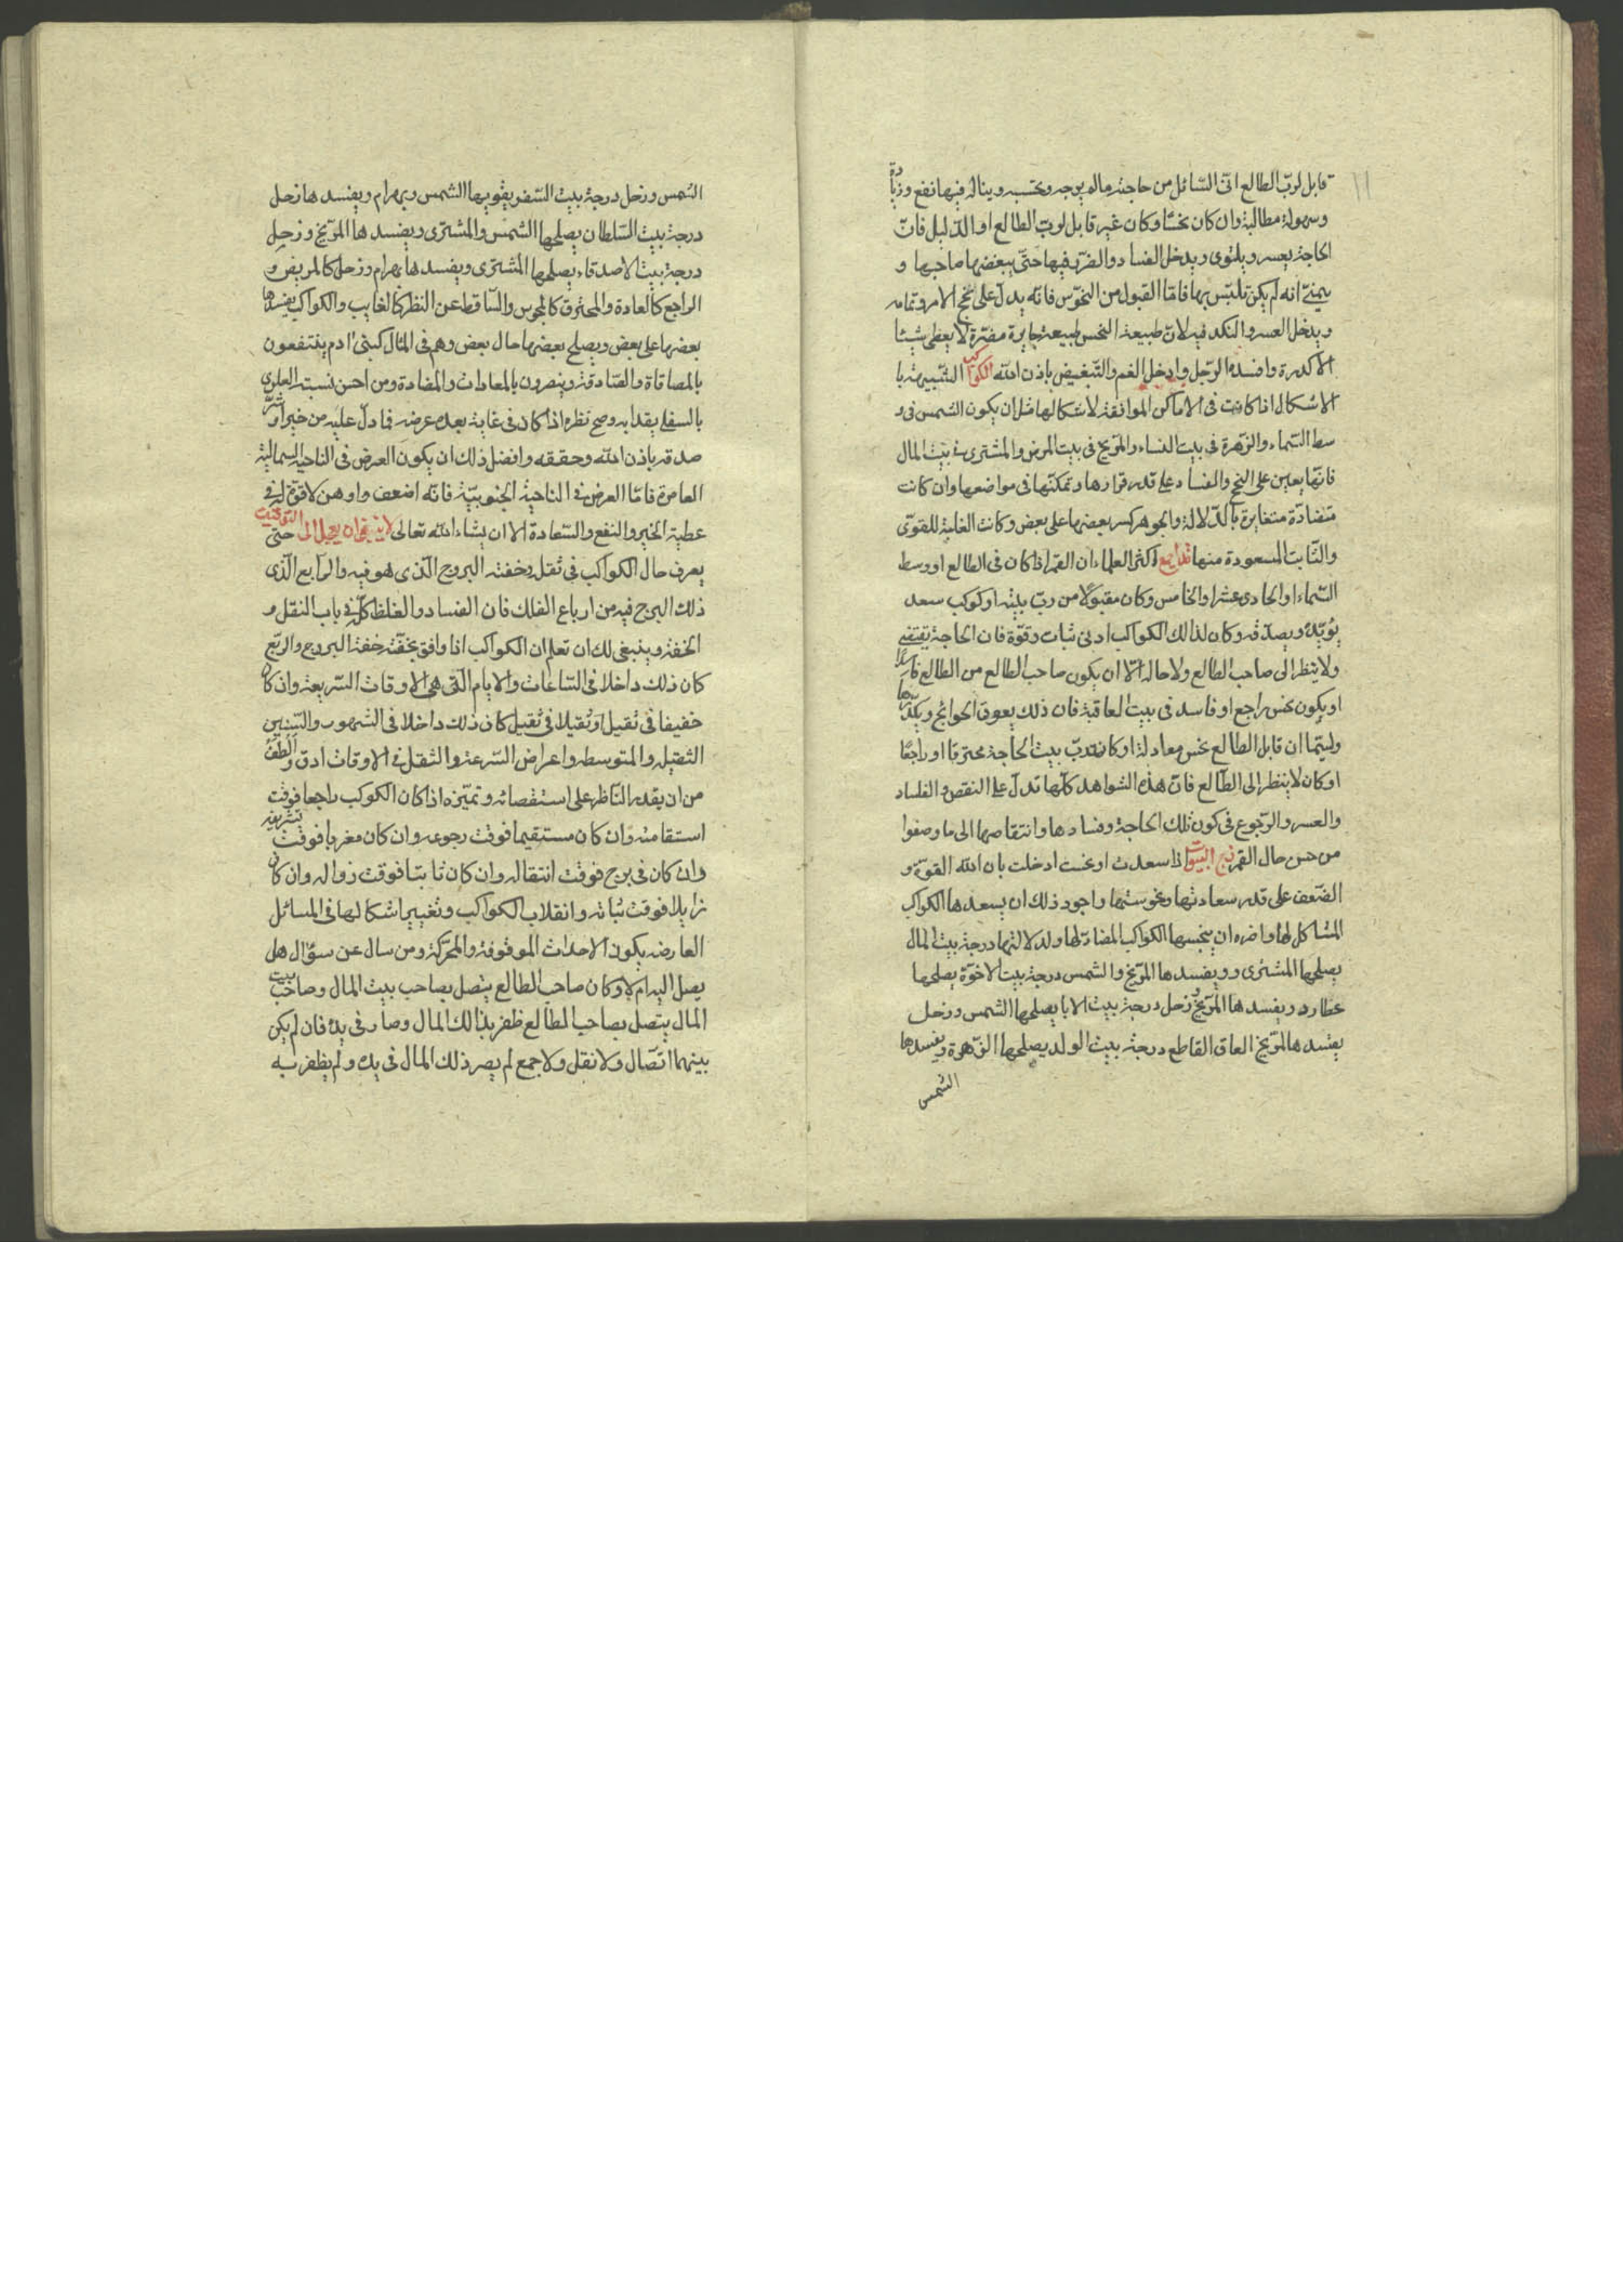 ١١
قابل لرب الطالع اتى السائل من حاجته ماله يوجه ويحتسبه ويناله فيها نفع وزيادة
وسهولة مطالبة وان كان نحسًا وكان غير قابل لوب الطالع او الدليل فان
الحاجة يعسر ويلتوى ويدخل الفساد والضر فيها حتى يبغضها صاحبها و
يتمنى انه لم يكن تلبس بها فامّا القبول من النحوس فانه يدل على نجح الامر وتمامه
ويدخل العسر والنكد فيه لان طبيعة النحس طبيعة جايرة مضرة لا يعطى شيئا
الا كدرة وافسده الرجل وادخل الغم والتبغيض باذن الله الكواكب الشبيهة با
الاشكال اذا كانت فى الاماكن الموافقة لاشكالها مثل ان يكون الشمس فى و
سط السماء والزهرة فى بيت النساء والمريخ فى بيت المرض والمشترى فى بيت المال
فانها يعين على النجح والفساد على قدر قرارها وتمكنها فى مواضعها وان كانت
متضادة متغايرة بالدلالة والجوهر كسر بعضها على بعض وكانت الغلبة للقوى
والثابت المسعودة منها اكثر العلماء ان القمر اذا كان فى الطالع او وسط
السماء او الحادى عشر او الخامس وكان مقبولًا من رب بيته او كوكب سعد
يؤيده ويصدقه وكان لذالك الكواكب ادنى ثبات وقوة فان الحاجة يقتضى
ولا ينظر الى صاحب الطالع ولا حاله الا ان يكون صاحب الطالع من الطالع فاسدًا
او يكون نحس راجع او فاسد فى بيت العاقبة فان ذلك يعوق الحوائج ويكدّرها
وليتما ان قابل الطالع نحس معادلة او كان رب بيت الحاجة محترقا او راجعًا
او كان لا ينظر الى الطالع فان هذه الشواهد كلها تدل على النقص والفساد
والعسر والرجوع فى كون تلك الحاجة وفسادها وانتقاصها الى ما وصفوا
من حسن حال القمر درج البيوت اذا سعدت او نحست ادخلت باذن الله القوة و
الضعف على قدر سعادتها ونحوستها واجود ذلك ان يسعدها الكواكب
المشاكل لها واضره ان ينحسها الكواكب المضادة لها ولدلالتها درجة بيت المال
يصلحها المشترى وويفسدها المريخ والشمس درجة بيت الاخوة يصلحها
عطارد ويفسدها المريخ وزحل درجة بيت الابا يصلحها الشمس وزحل
يفسدها المريخ العاق القاطع درجة بيت الولد يصلحها الزهرة ويفسدها
الشمس
الشمس وزحل درجة بيت السفر يقويها الشمس وبهرام ويفسدها زحل
درجة بيت السلطان يصلحها الشمس والمشترى ويفسدها المريخ وزحل
درجة بيت الاصدقاء يصلحها المشترى ويفسدها بهرام وزحل كالمريض و
الراجع كالعادة والمحترق كالمحبوس والساقط عن النظر كالغايب والكواكب يفسدها
بعضها على بعض ويصلح بعضها حال بعض وهم فى المثال كبنى ادم ينتفعون
بالمصافاة والصادقة ويضرون بالمعادات والمضادة ومن احسن نسبته العلوى
بالسفلى بقدابه وصح نظره اذا كان فى غاية بعده عرضه فما دل عليه من خير او شرّ
صدقه باذن الله وحققه وافضل ذلك ان يكون العرض فى الناحية الشمالية
العامرة فامّا العرض فى الناحية الجنوبيّة فانه اضعف واوهن لا قوة له فى
عطية الخير والنفع والسعادة الا ان يشاء الله تعالى لا ينبغى ان يعجل الى التوقيت حتى
يعرف حال الكواكب فى ثقله وخفته البروج الذى هو فيه والرابع الذى
ذلك البرج فيه من ارباع الفلك فان الفساد والغلظ كلّه فى باب النقل و
الخفة وينبغى لك ان تعلم ان الكواكب اذا وافق بخفّته خفة البروج والربع
كان ذلك داخلا فى الساعات والايام التى هى الاوقات السريعة وان كان
خفيفا فى ثقيل او ثقيلا فى ثقيل كان ذلك داخلا فى الشهور والسنين
الثقيله والمتوسطه واعراض السرعة والثقل فى الاوقات ادق والطف
من ان يقدر الناظر على استقصائه وتميزه اذا كان الكوكب راجعا فوقت
استقامته وان كان مستقيما فوقت رجوعه وان كان مغربا فوقت تشريقه
وان كان فى برج فوقت انتقاله وان كان ثابتا فوقت زواله وان كان
زايلا فوقت ثباته وانقلاب الكواكب وتغيير اشكالها فى المسائل
العارضه يكون الاحداث الموقوفة والمحركة ومن سال عن سؤال هل
يصل اليه ام لا وكان صاحب الطالع يتصل بصاحب بيت المال وصاحب بيت
المال يتصل بصاحب الطالع ظفر بذالك المال وصار فى يده فان لم يكن
بينهما اتصال ولا نقل ولا جمع لم يصر ذلك المال فى يده ولم يظفر به